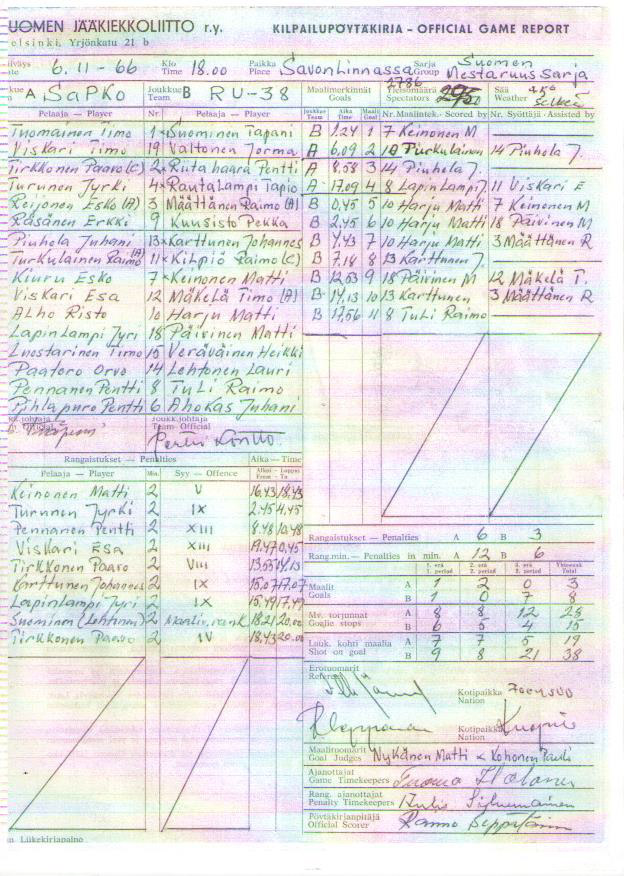 UOMEN JÄÄKIEKKOLIITTO r.y. KILPAILUPÖYTÄKIRJA - OFFICIAL GAME REPORT
elsinki, Yrjönkatu 21 b
6.11-66 Klo Time 18.00 Paikka Place Savonlinnassa Sarja Group Suomen Mestaruussarja
A SaPKo Joukkue Team B RU-38 Maalimerkinnät Goals Yleisömäärä Spectators 2786 Sää Weather
Pelaaja — Player Nr. Pelaaja — Player Joukkue Team Aika Time Maali Goal Nr. Maalintek. - Scored by Nr. Syöttäjä - Assisted by
Tuomainen Timo 1 Suominen Tapani B 1.24 1 7 Keinonen M
Viskari Timo 19 Valtonen Jorma A 6,09 2 10 Turkulainen 14 Piuhola J.
Tirkkonen Paavo (C) 2 Riutahaara Pentti A 8.58 3 14 Piuhola J.
Turunen Jyrki 4 RautaLampi Tapio A 17.09 4 8 LapinLampi J. 11 Viskari E
Reijonen Esko (A) 3 Määttänen Raimo (A) B 0,45 5 10 Harju Matti 7 Keinonen M
Räsänen Erkki 9 Kuusisto Pekka B 2,45 6 10 Harju Matti 18 Päivinen M
Piuhola Juhani 13 Karttunen Johannes B 7 10 Harju Matti 3 Määttänen R
Turkulainen Raimo (A) 11 Kilpiö Raimo (C) B 7,18 8 13 Karttunen J.
Kiuru Esko 7 Keinonen Matti B 12,53 9 18 Päivinen M 12 Mäkelä T.
Viskari Esa 12 Mäkelä Timo (A) B 14,13 10 13 Karttunen 3 Määttänen R
Alho Risto 10 Harju Matti B 17,56 11 8 Tuli Raimo
LapinLampi Jyri 18 Päivinen Matti
Inostarinen Timo 15 Veräväinen Heikki
Paatoro Orvo 14 Lehtonen Lauri
Pennanen Pentti 8 Tuli Raimo
Pihlapuro Pentti 6 Ahokas Juhani
Joukk.johtaja
Team Official
Rangaistukset — Penalties Aika — Time
Pelaaja — Player Min. Syy — Offence
Keinonen Matti 2 V 16,43 18,43
Turunen Jyrki 2 IX 2.45 4,45
Pennanen Pentti 2 XIII 8.48 10,48
Viskari Esa 2 XIII 19.47 0,45
Tirkkonen Paavo 2 VIII
Karttunen Johannes 2 IX 15.07 17.07
LapinLampi Jyri 2 IX 15,49 17,49
Suominen (Lehtonen) 2 18,21 20.00
Tirkkonen Paavo 2 IV 18,43 20.00
Rangaistukset — Penalties A 6 B 3
Rang.min. — Penalties in min. A 12 B 6
1. erä 1. period 2. erä 2. period 3. erä 3. period Yhteensä Total
Maalit Goals A 1 2 0 3
B 1 0 7 8
Mv. torjunnat Goalie stops A 8 8 12 28
B 6 5 4 15
Lauk. kohti maalia Shot on goal A 7 7 5 19
B 9 8 21 38
Erotuomarit
Referees
Kotipaikka
Nation
Kotipaikka Kuopio
Nation
Maalituomarit
Goal Judges Nykänen Matti & Kohonen
Ajanottajat
Game Timekeepers
Rang. ajanottajat
Penalty Timekeepers
Pöytäkirjanpitäjä
Official Scorer
n Liikekirjapaino